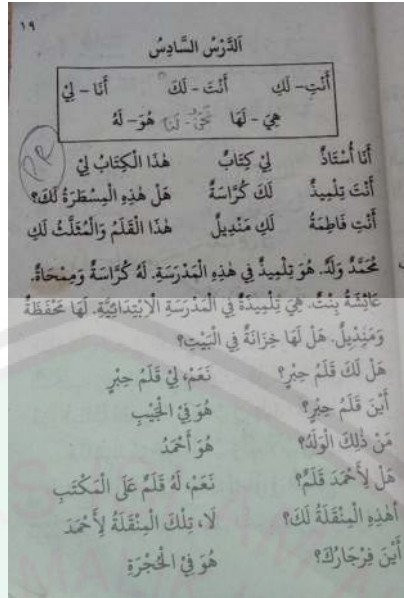 ١٩
اَلدَّرْسُ السَّادِسُ
أَنْتِ - لَكِ أَنْتَ - لَكَ أَنَا - لِيْ
هِيَ - لَهَا نَحْنُ - لَنَا هُوَ - لَهُ
PR
أَنَا أُسْتَاذٌ لِيْ كِتَابٌ هٰذَا الْكِتَابُ لِيْ
أَنْتَ تِلْمِيذٌ لَكَ كُرَّاسَةٌ هَلْ هٰذِهِ الْمِسْطَرَةُ لَكَ؟
أَنْتِ فَاطِمَةُ لَكِ مَنْدِيلٌ هٰذَا الْقَلَمُ وَالْمُثَلَّثُ لَكِ
مُحَمَّدٌ وَلَدٌ. هُوَ تِلْمِيذٌ فِي هٰذِهِ الْمَدْرَسَةِ. لَهُ كُرَّاسَةٌ وَمِمْحَاةٌ.
عَائِشَةُ بِنْتٌ. هِيَ تِلْمِيذَةٌ فِي الْمَدْرَسَةِ الْاِبْتِدَائِيَّةِ. لَهَا مَحْفَظَةٌ
وَمَنْدِيلٌ. هَلْ لَهَا خِزَانَةٌ فِي الْبَيْتِ؟
هَلْ لَكَ قَلَمُ حِبْرٍ؟ نَعَمْ، لِيْ قَلَمُ حِبْرٍ
أَيْنَ قَلَمُ حِبْرٍ؟ هُوَ فِيْ الْجَيْبِ
مَنْ ذٰلِكَ الْوَلَدُ؟ هُوَ أَحْمَدُ
هَلْ لِأَحْمَدَ قَلَمٌ؟ نَعَمْ، لَهُ قَلَمٌ عَلَى الْمَكْتَبِ
أَهٰذِهِ الْمِنْقَلَةُ لَكَ؟ لَا، تِلْكَ الْمِنْقَلَةُ لِأَحْمَدَ
أَيْنَ فِرْجَارُكَ؟ هُوَ فِيْ الْحُجْرَةِ